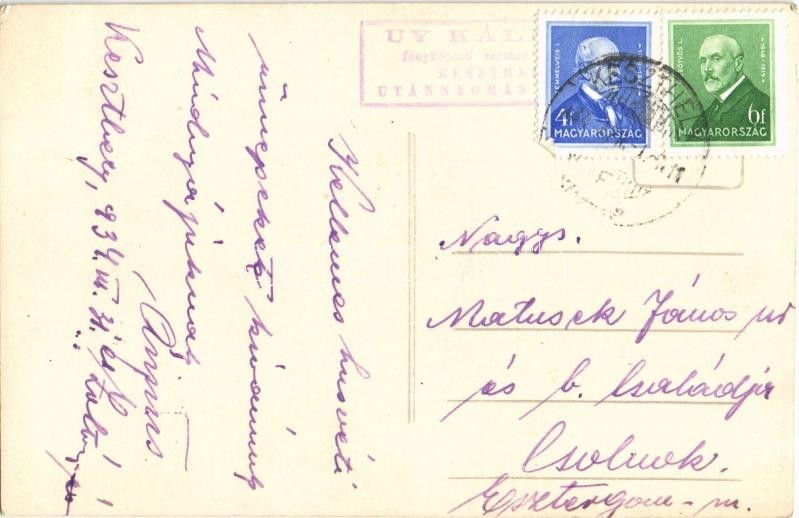 UY KÁL
fényképész mester
KESZTHE
UTÁNNYOMÁS
SEMMELVEIS I.
4f
MAGYARORSZÁG
EÖTVÖS L. 1848-1919
6f
MAGYARORSZÁG
KESZTHELY
Kellemes husvéti
ünnepeket kivánunk
Mindnyájuknak
Keszthely, 934. III. 31.
Nagys.
Matusek János úr
és b. Családja
Csolnok.
Esztergom-m.